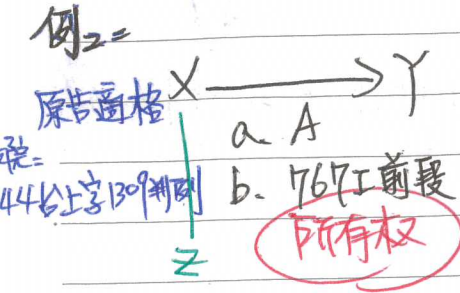 例2=
X → Y
原告適格
a. A
院=
44台上字1309判例
b. 767I前段
所有权
Z